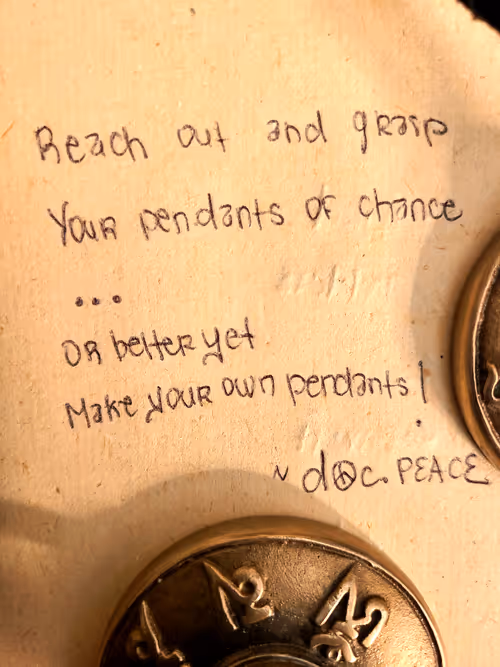 Reach out and grasp
Your pendants of chance
...
OR better yet
Make your own pendants!
~ d☮c. PEACE